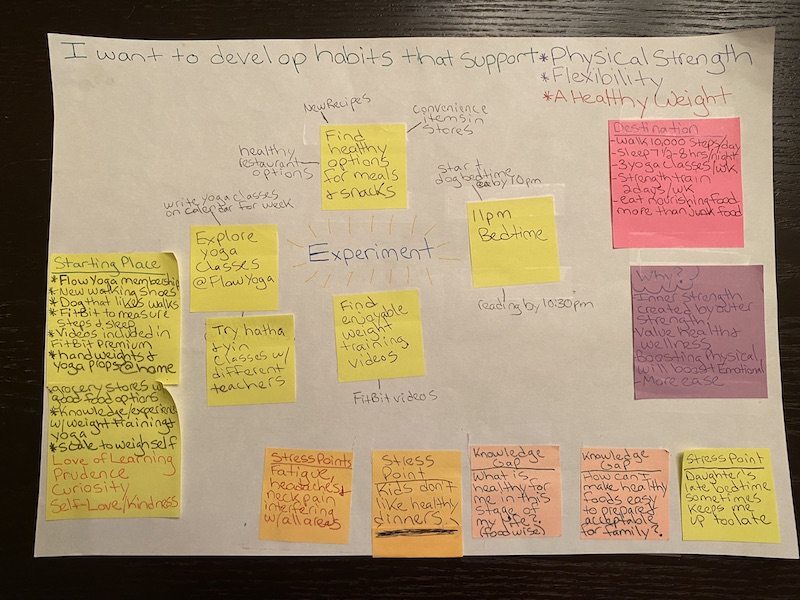 I want to develop habits that support *Physical Strength
*Flexibility
*A Healthy Weight
New Recipes
Convenience
items in
stores
healthy
restaurant
options
Find
healthy
options
for meals
& snacks
start
dog bedtime
by 10pm
11pm
Bedtime
reading by 10:30pm
write yoga classes
on calendar for week
Explore
yoga
classes
@Flow Yoga
Try hatha
& yin
classes w/
different
teachers
Experiment
Find
enjoyable
weight
training
videos
FitBit videos
Destination
-Walk 10,000 steps/day
-Sleep 7 1/2-8hrs/night
-3 yoga classes/wk
-Strength train
2 days/wk
-eat nourishing food
more than junk food
Why?
Inner strength
created by outer
strength
Value health &
wellness
Boosting Physical
will boost Emotional
-More ease
Starting Place
*Flow Yoga membership
*New walking shoes
*Dog that likes walks
*FitBit to measure
steps & sleep
*Videos included in
FitBit Premium
*hand weights &
yoga props @ home
*grocery stores w/
good food options
*Knowledge/experience
w/weight training &
yoga
*Scale to weigh self
Love of Learning
Prudence
Curiosity
Self-Love/Kindness
Stress Points
Fatigue,
headaches,
neck pain
interfering
w/all areas
Stress
Point
Kids don't
like healthy
dinners
Knowledge
Gap
What is
healthy for
me in this
stage of
my life?
(food wise)
Knowledge
Gap
How can I
make healthy
foods easy
to prepare &
acceptable
for family?
Stress Point
Daughter's
late bedtime
sometimes
keeps me
up too late